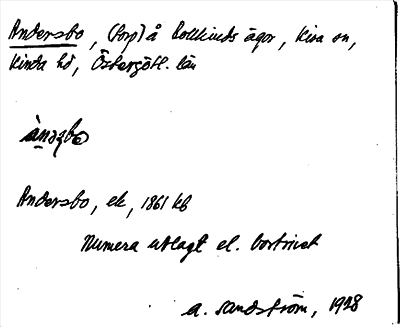 Andersbo, (torp) å Hallkinds ägor, Kisa sn,
Kinda hd, Östergötl. län
Andersbo, ek, 1861 kb
Numera utlagt el. bortrivet
A. Sandström, 1928